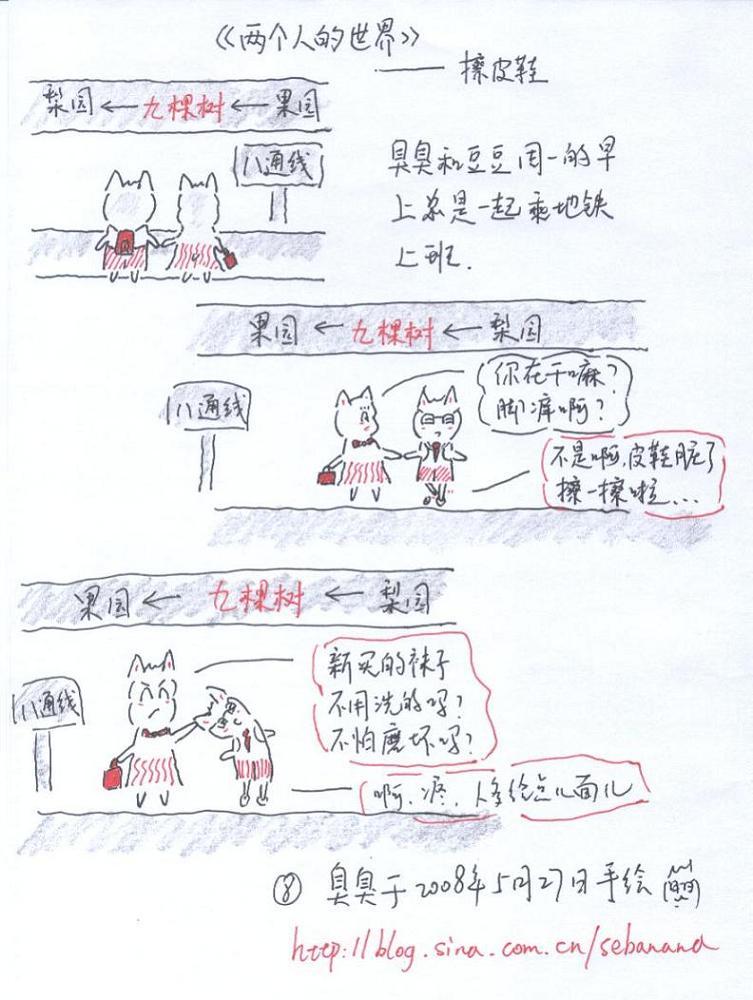 《两个人的世界》
—— 擦皮鞋
梨园 ← 九棵树 ← 果园
八通线
臭臭和豆豆周一的早
上总是一起乘地铁
上班.
果园 ← 九棵树 ← 梨园
八通线
你在干嘛?
脚痒啊?
不是啊,皮鞋脏了
擦一擦啦...
果园 ← 九棵树 ← 梨园
八通线
新买的袜子
不用洗的吗?
不怕磨坏吗?
啊,疼,人多给点儿面儿
⑧ 臭臭于2008年5月27日手绘
http://blog.sina.com.cn/sebanana